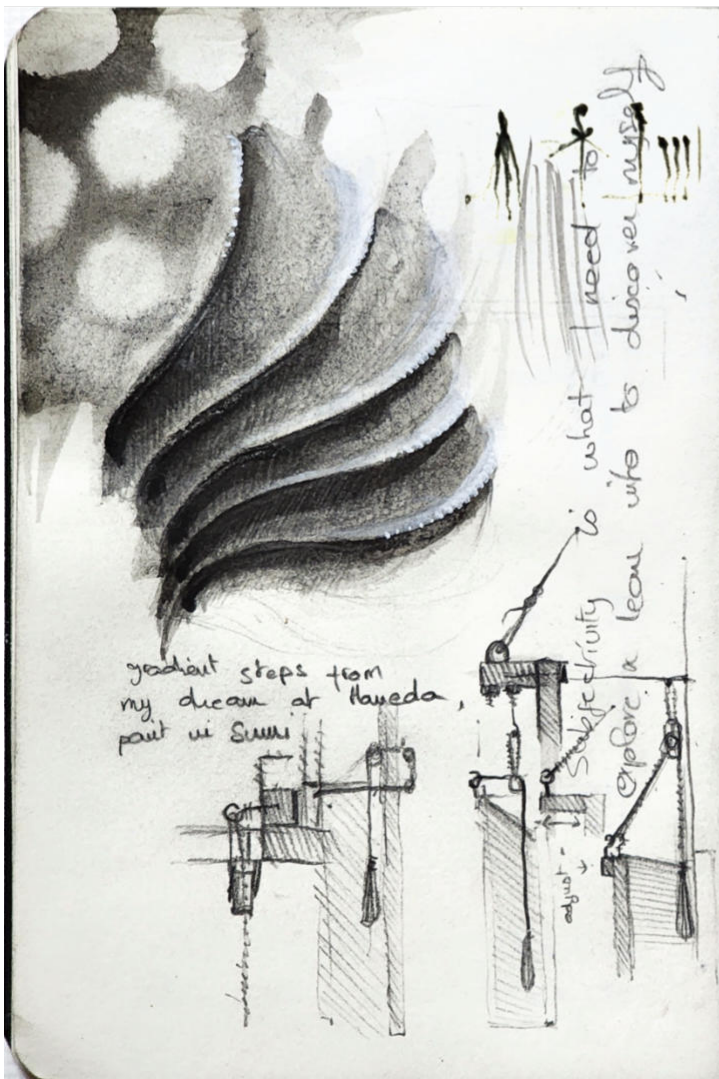 gradient steps from
my dream at Haneda,
paint in Sumi
Subjectivity is what I need to
explore & lean into to discover myself
adjust